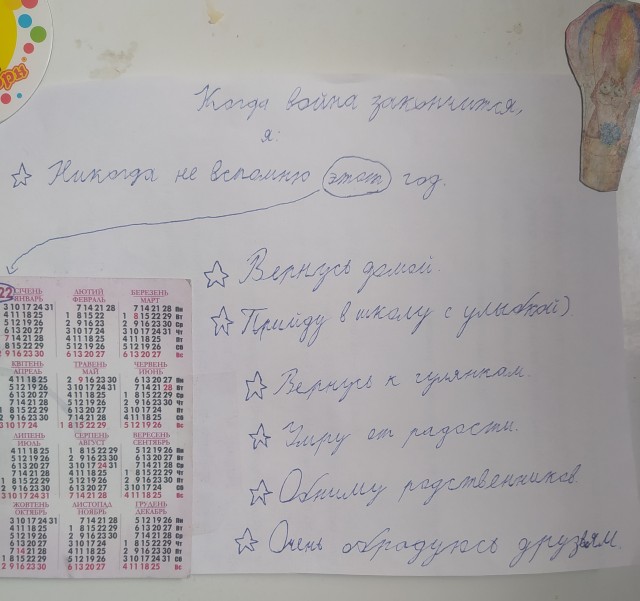 Когда война закончится,
я:
☆ Никогда не вспомню этот год.
☆ Вернусь домой.
☆ Прийду в школу с улыбкой)
☆ Вернусь к гулянкам.
☆ Умру от радости.
☆ Обниму родственников.
☆ Очень обрадуюсь друзьям.
22
СІЧЕНЬ ЛЮТИЙ БЕРЕЗЕНЬ
ЯНВАРЬ ФЕВРАЛЬ МАРТ
3 10 17 24 31 7 14 21 28 7 14 21 28 Пн
4 11 18 25 1 8 15 22 1 8 15 22 29 Вт
5 12 19 26 2 9 16 23 2 9 16 23 30 Ср
6 13 20 27 3 10 17 24 3 10 17 24 31 Чт
7 14 21 28 4 11 18 25 4 11 18 25 Пт
1 8 15 22 29 5 12 19 26 5 12 19 26 Сб
2 9 16 23 30 6 13 20 27 6 13 20 27 Вс
КВІТЕНЬ ТРАВЕНЬ ЧЕРВЕНЬ
АПРЕЛЬ МАЙ ИЮНЬ
4 11 18 25 2 9 16 23 30 6 13 20 27 Пн
5 12 19 26 3 10 17 24 31 7 14 21 28 Вт
6 13 20 27 4 11 18 25 1 8 15 22 29 Ср
7 14 21 28 5 12 19 26 2 9 16 23 30 Чт
1 8 15 22 29 6 13 20 27 3 10 17 24 Пт
2 9 16 23 30 7 14 21 28 4 11 18 25 Сб
3 10 17 24 1 8 15 22 29 5 12 19 26 Вс
ЛИПЕНЬ СЕРПЕНЬ ВЕРЕСЕНЬ
ИЮЛЬ АВГУСТ СЕНТЯБРЬ
4 11 18 25 1 8 15 22 29 5 12 19 26 Пн
5 12 19 26 2 9 16 23 30 6 13 20 27 Вт
6 13 20 27 3 10 17 24 31 7 14 21 28 Ср
7 14 21 28 4 11 18 25 1 8 15 22 29 Чт
1 8 15 22 29 5 12 19 26 2 9 16 23 30 Пт
2 9 16 23 30 6 13 20 27 3 10 17 24 Сб
3 10 17 24 31 7 14 21 28 4 11 18 25 Вс
ЖОВТЕНЬ ЛИСТОПАД ГРУДЕНЬ
ОКТЯБРЬ НОЯБРЬ ДЕКАБРЬ
3 10 17 24 31 7 14 21 28 5 12 19 26 Пн
4 11 18 25 1 8 15 22 29 6 13 20 27 Вт
5 12 19 26 2 9 16 23 30 7 14 21 28 Ср
6 13 20 27 3 10 17 24 1 8 15 22 29 Чт
7 14 21 28 4 11 18 25 2 9 16 23 30 Пт
1 8 15 22 29 5 12 19 26 3 10 17 24 31 Сб
2 9 16 23 30 6 13 20 27 4 11 18 25 Вс